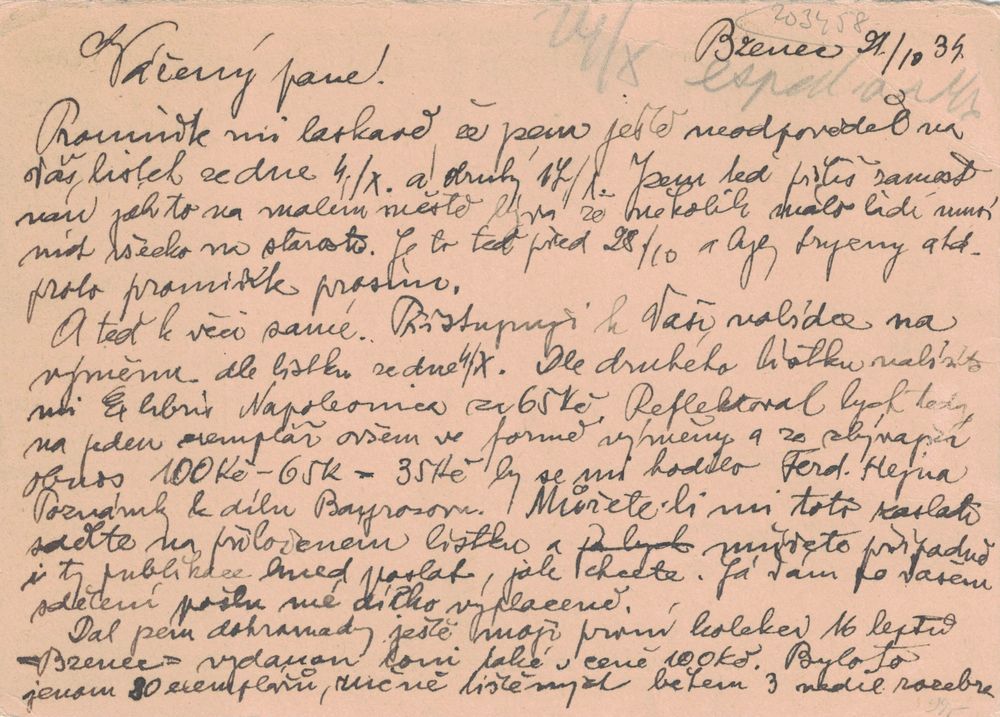 203458
24/X
Bzenec 21/10 34.
Vážený pane!
Promiňte mi laskavě, že jsem ještě neodpověděl na
Váš lístek ze dne 4./X. a druhý 17/X. Jsem teď příliš zaměst
nán jak to na malém městě bývá že několik málo lidí musí
mít všecko na starosti. Je to teď před 28./10 a
proto promiňte prosím.
A teď k věci samé. Přistupuji k Vaší nabídce na
výměnu dle lístku ze dne 4/X. Dle druhého lístku nabízíte
mi Exlibris Napoleonica za 65Kč. Reflektoval bych tedy
na jeden exemplář ovšem ve formě výměny a za zbývající
obnos 100Kč - 65K = 35Kč by se mi hodilo Ferd. Hejna
Poznámky k dílu Bayrosovu. Můžete-li mi toto zaslati
sdělte na přiloženém lístku a můžete případně
i ty publikace hned poslat, jak chcete. Já Vám po Vašem
sdělení pošlu mé dílko výplaceně.
Dal jsem dohromady ještě moji první kolekci 16 leptů
"Bzenec" vydanou loni také v ceně 100Kč. Bylo to
jenom 30 exemplářů, ručně tištěných během 3 neděl rozebra